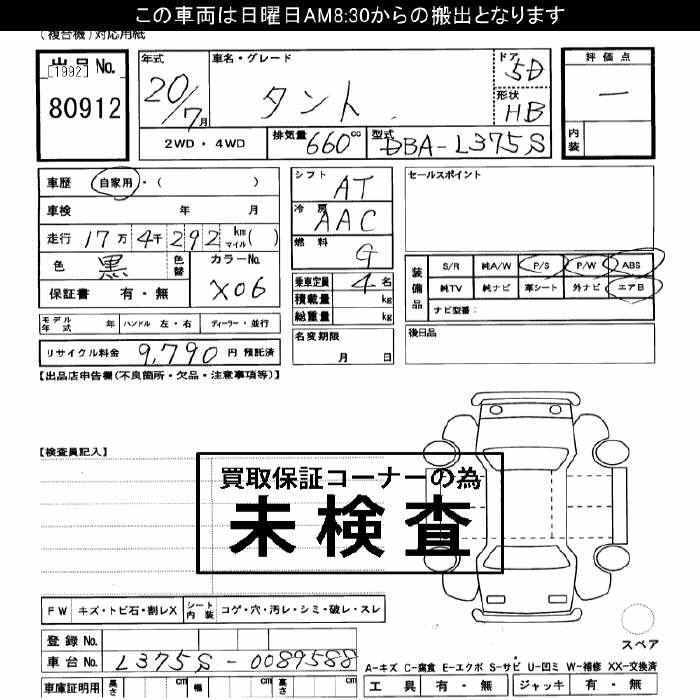 この車両は日曜日AM8:30からの搬出となります
(複合機)対応用紙
出品No.
[1992]
80912
年式
20/7月
車名・グレード
タント
ドア
5D
形状
HB
評価点
―
内装
2WD・4WD
排気量
660cc
型式
DBA-L375S
車歴 自家用・( )
車検 年 月
走行 17万 4千 292 km マイル( )
色 黒 色替
カラーNo.
X06
保証書 有・無
シフト
AT
冷房
AAC
燃料
G
乗車定員 4 名
積載量 kg
総重量 kg
セールスポイント
装備品
S/R 純A/W P/S P/W ABS
純TV 純ナビ 革シート 外ナビ エアB
ナビ型番:
モデル年式 年 ハンドル 左・右 ディーラー・並行
名変期限
月 日
後日品
リサイクル料金 9,790 円 預託済
【出品店申告欄(不良箇所・欠品・注意事項等)】
【検査員記入】
買取保証コーナーの為
未検査
FW キズ・トビ石・割レX シート内装 コゲ・穴・汚レ・シミ・破レ・スレ
スペア
登録No.
車台No. L375S-0089588
A-キズ C-腐食 E-エクボ S-サビ U-凹ミ W-補修 XX-交換済
車庫証明用 長さ cm 幅 cm 高さ cm
工具 有・無 ジャッキ 有・無